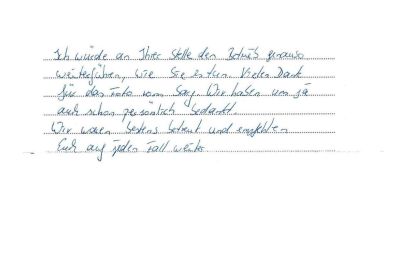 Ich würde an Ihrer Stelle den Betrieb genauso
weiterführen, wie Sie es tun. Vielen Dank
für das Foto vom Sarg. Wir haben uns ja
auch schon persönlich bedankt.
Wir waren bestens betreut und empfehlen
Euch auf jeden Fall weiter